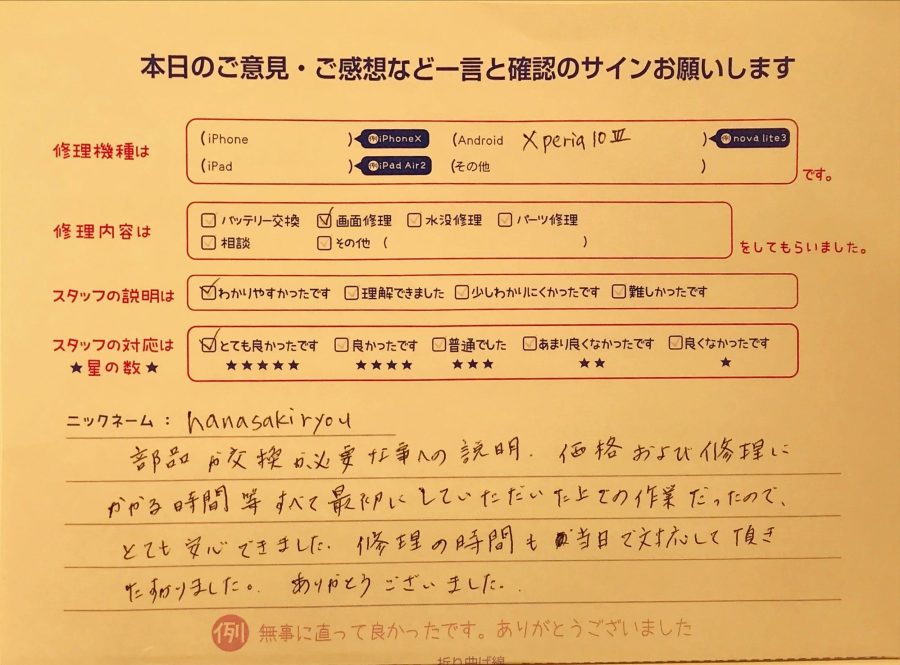 本日のご意見・ご感想など一言と確認のサインお願いします
修理機種は
(iPhone ) 例iPhoneX (Android Xperia 10 Ⅲ ) 例nova lite3
(iPad ) 例iPad Air2 (その他 )
です。
修理内容は
バッテリー交換 画面修理 水没修理 パーツ修理
相談 その他 ( )
をしてもらいました。
スタッフの説明は
わかりやすかったです 理解できました 少しわかりにくかったです 難しかったです
スタッフの対応は
★星の数★
とても良かったです 良かったです 普通でした あまり良くなかったです 良くなかったです
★★★★★ ★★★★ ★★★ ★★ ★
ニックネーム： hanasakiryou
部品が交換が必要な事への説明、価格および修理に
かかる時間等すべて最初にしていただいた上での作業だったので、
とても安心できました。修理の時間も当日で対応して頂き
たすかりました。ありがとうございました。
例 無事に直って良かったです。ありがとうございました
折り曲げ線